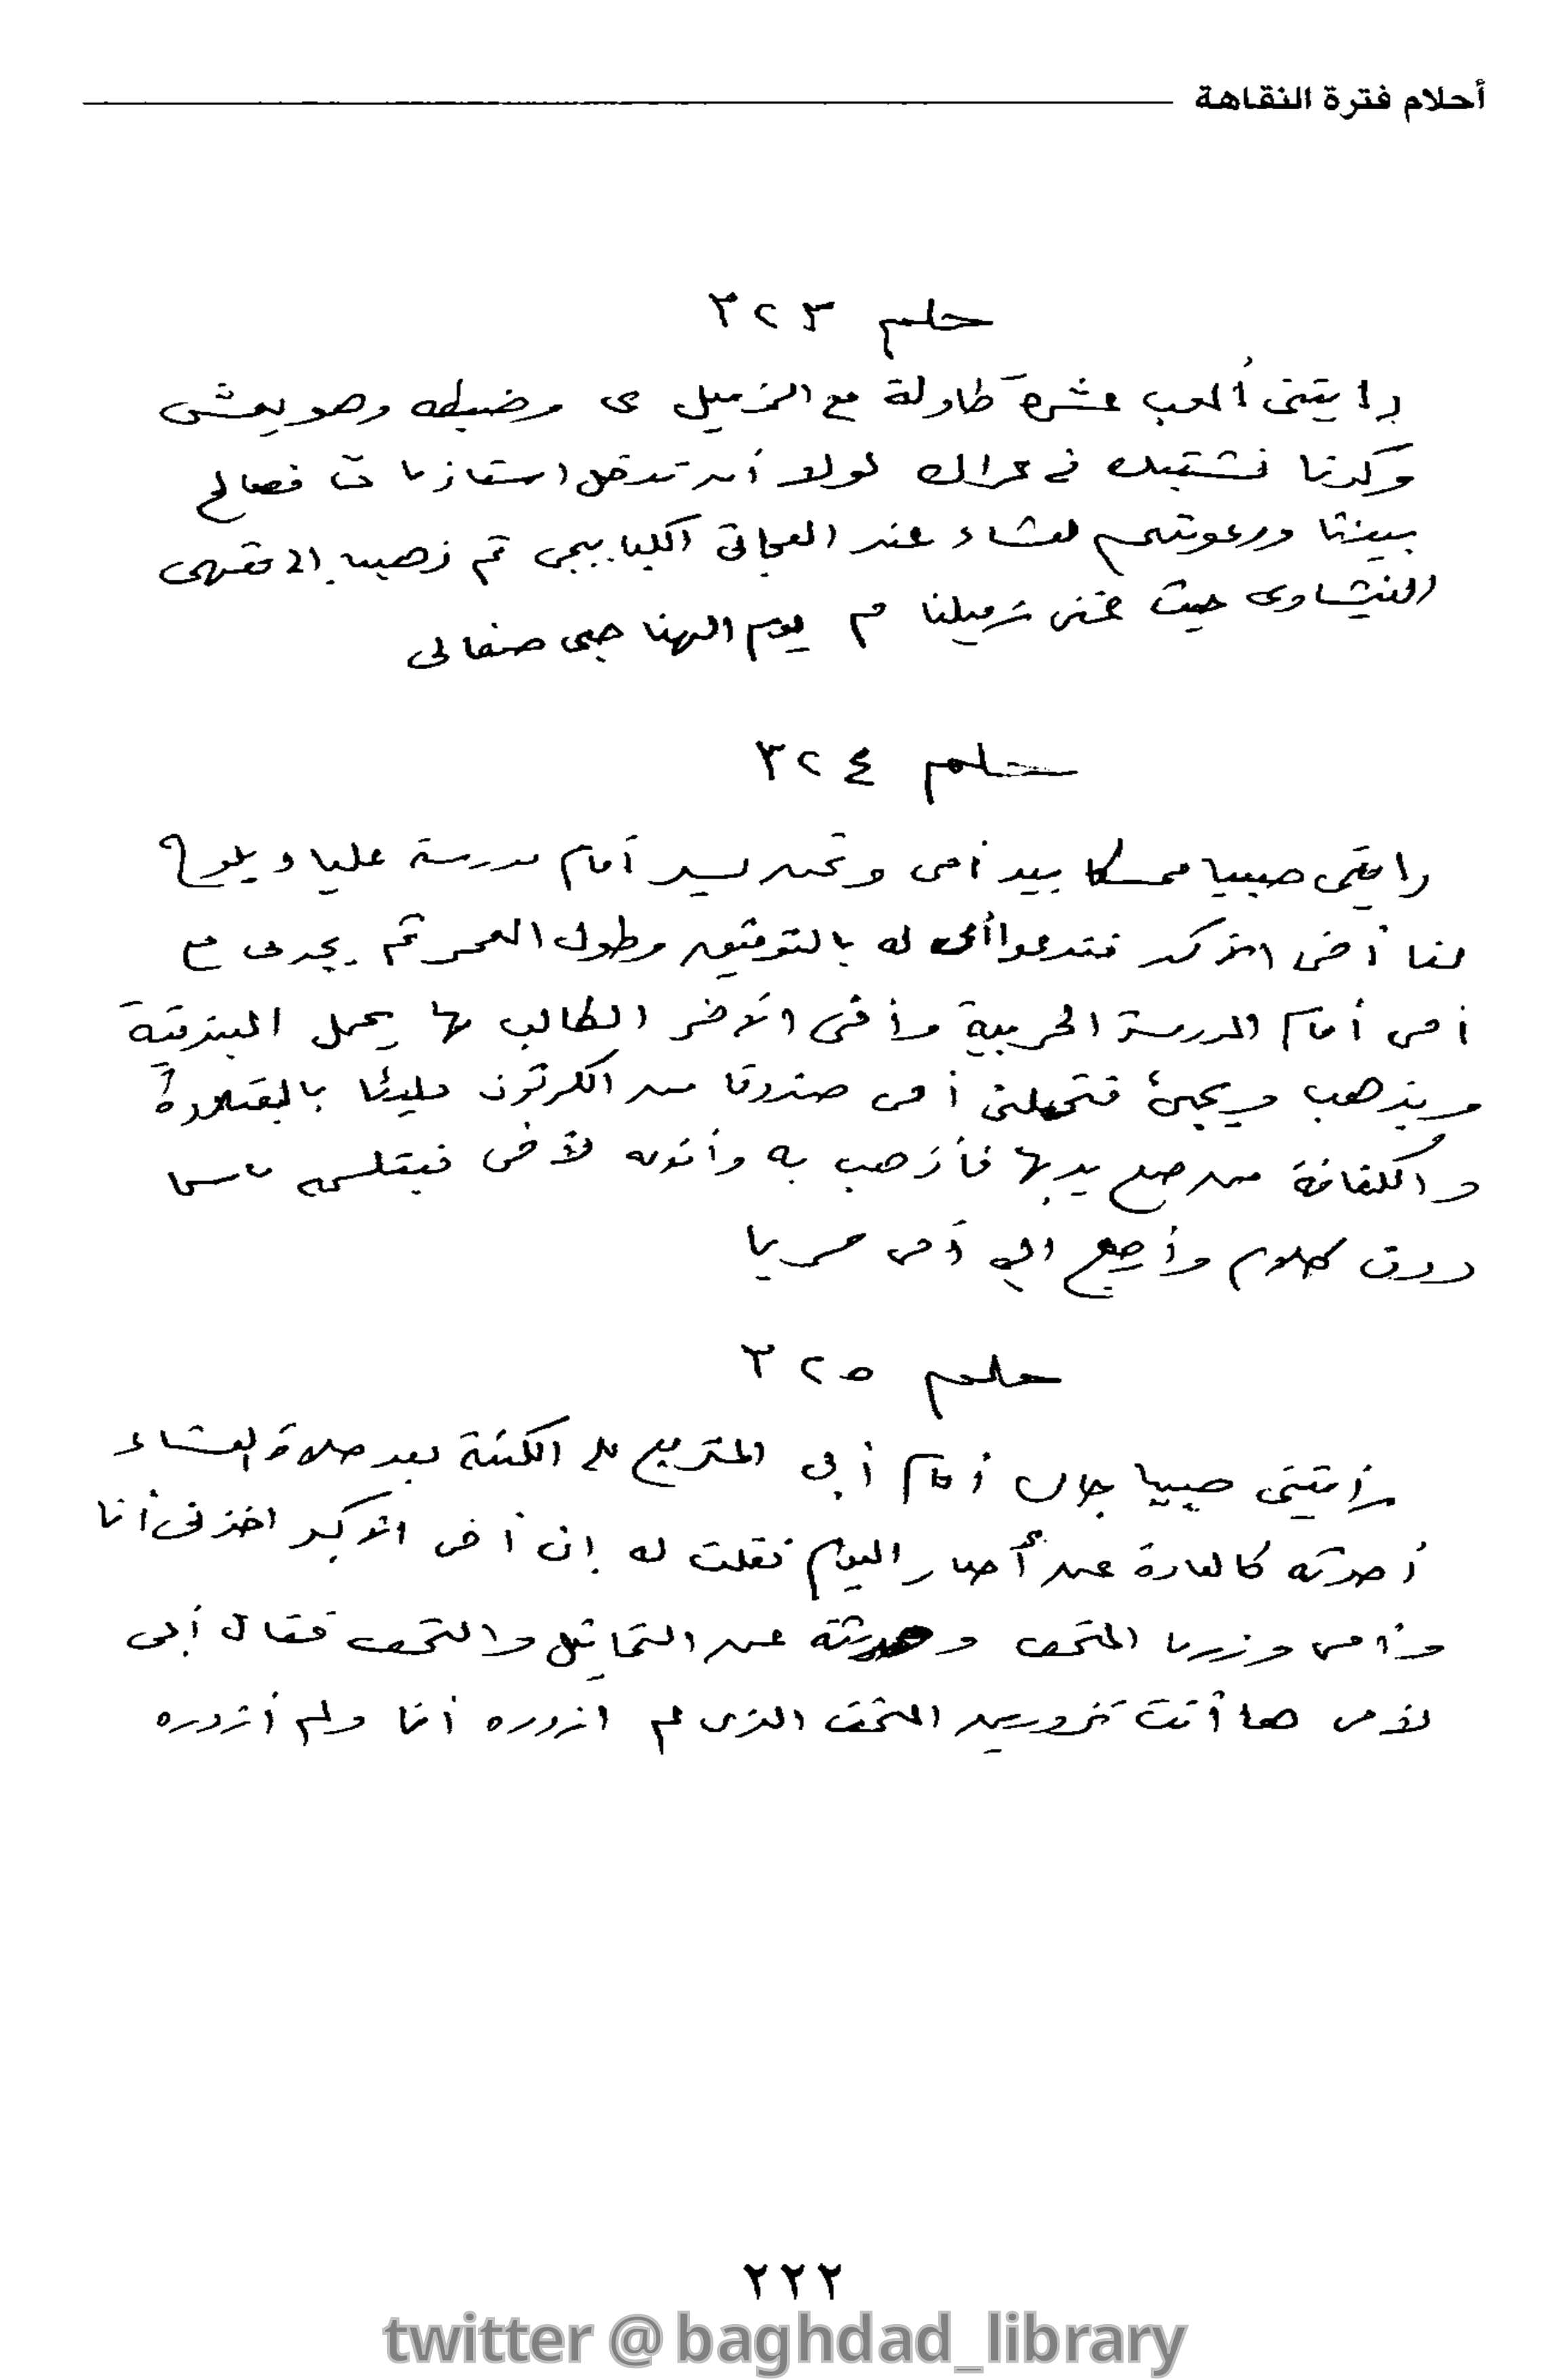 أحلام فترة النقاهة
حلم ٣٢٣
رايتنى ألعب عشرة طاولة مع الزميل ى وضبطه وهو يغش
وكدنا نشتبك فى عراك لولا أن تدخل استاذنا ت فصالح
بيننا ودعوتهم لعشاء عند العجاتى الكبابجى ثم ذهبنا إلى مقهى
الفيشاوى حيث غنى زميلنا م يوم الهنا حبى صفالى
حلم ٣٢٤
رايتنى صبيا ممسكا بيد أمى ونحن نسير أمام مدرسة عليا ويلوح
لنا أخى الأكبر فتدعوا أمى له بالتوفيق وطول العمر ثم يجرى مع
أمى أمام المدرسة الحربية وأخى الآخر الطالب بها يحمل البندقية
ويذهب ويجئ فتحملنى أمى صندوقا من الكرتون مليئا بالبقلاوة
والكنافة من صنع يديها فأذهب به وأقدمه لأخى
دون كلام وأرجع إلى أمى جريا
حلم ٣٢٥
رأيتنى صبيا جالس أمام أبى المتربع على الكنبة بعد صلاة العشاء
أحدثه كالعادة عن أخبار اليوم فقلت له إن أخى الأكبر اخذنى أنا
وأمى وزرنا المتحف وحدثته عن التماثيل والتحف فقال أبى
لأمى ها أنت تزورين المتحف الذى لم ازوره أنا ولم أزوره
٢٢٢
twitter @baghdad_library